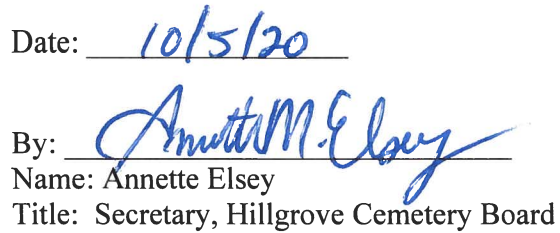 Date: 10/5/20
By: Annette M. Elsey
Name: Annette Elsey
Title: Secretary, Hillgrove Cemetery Board